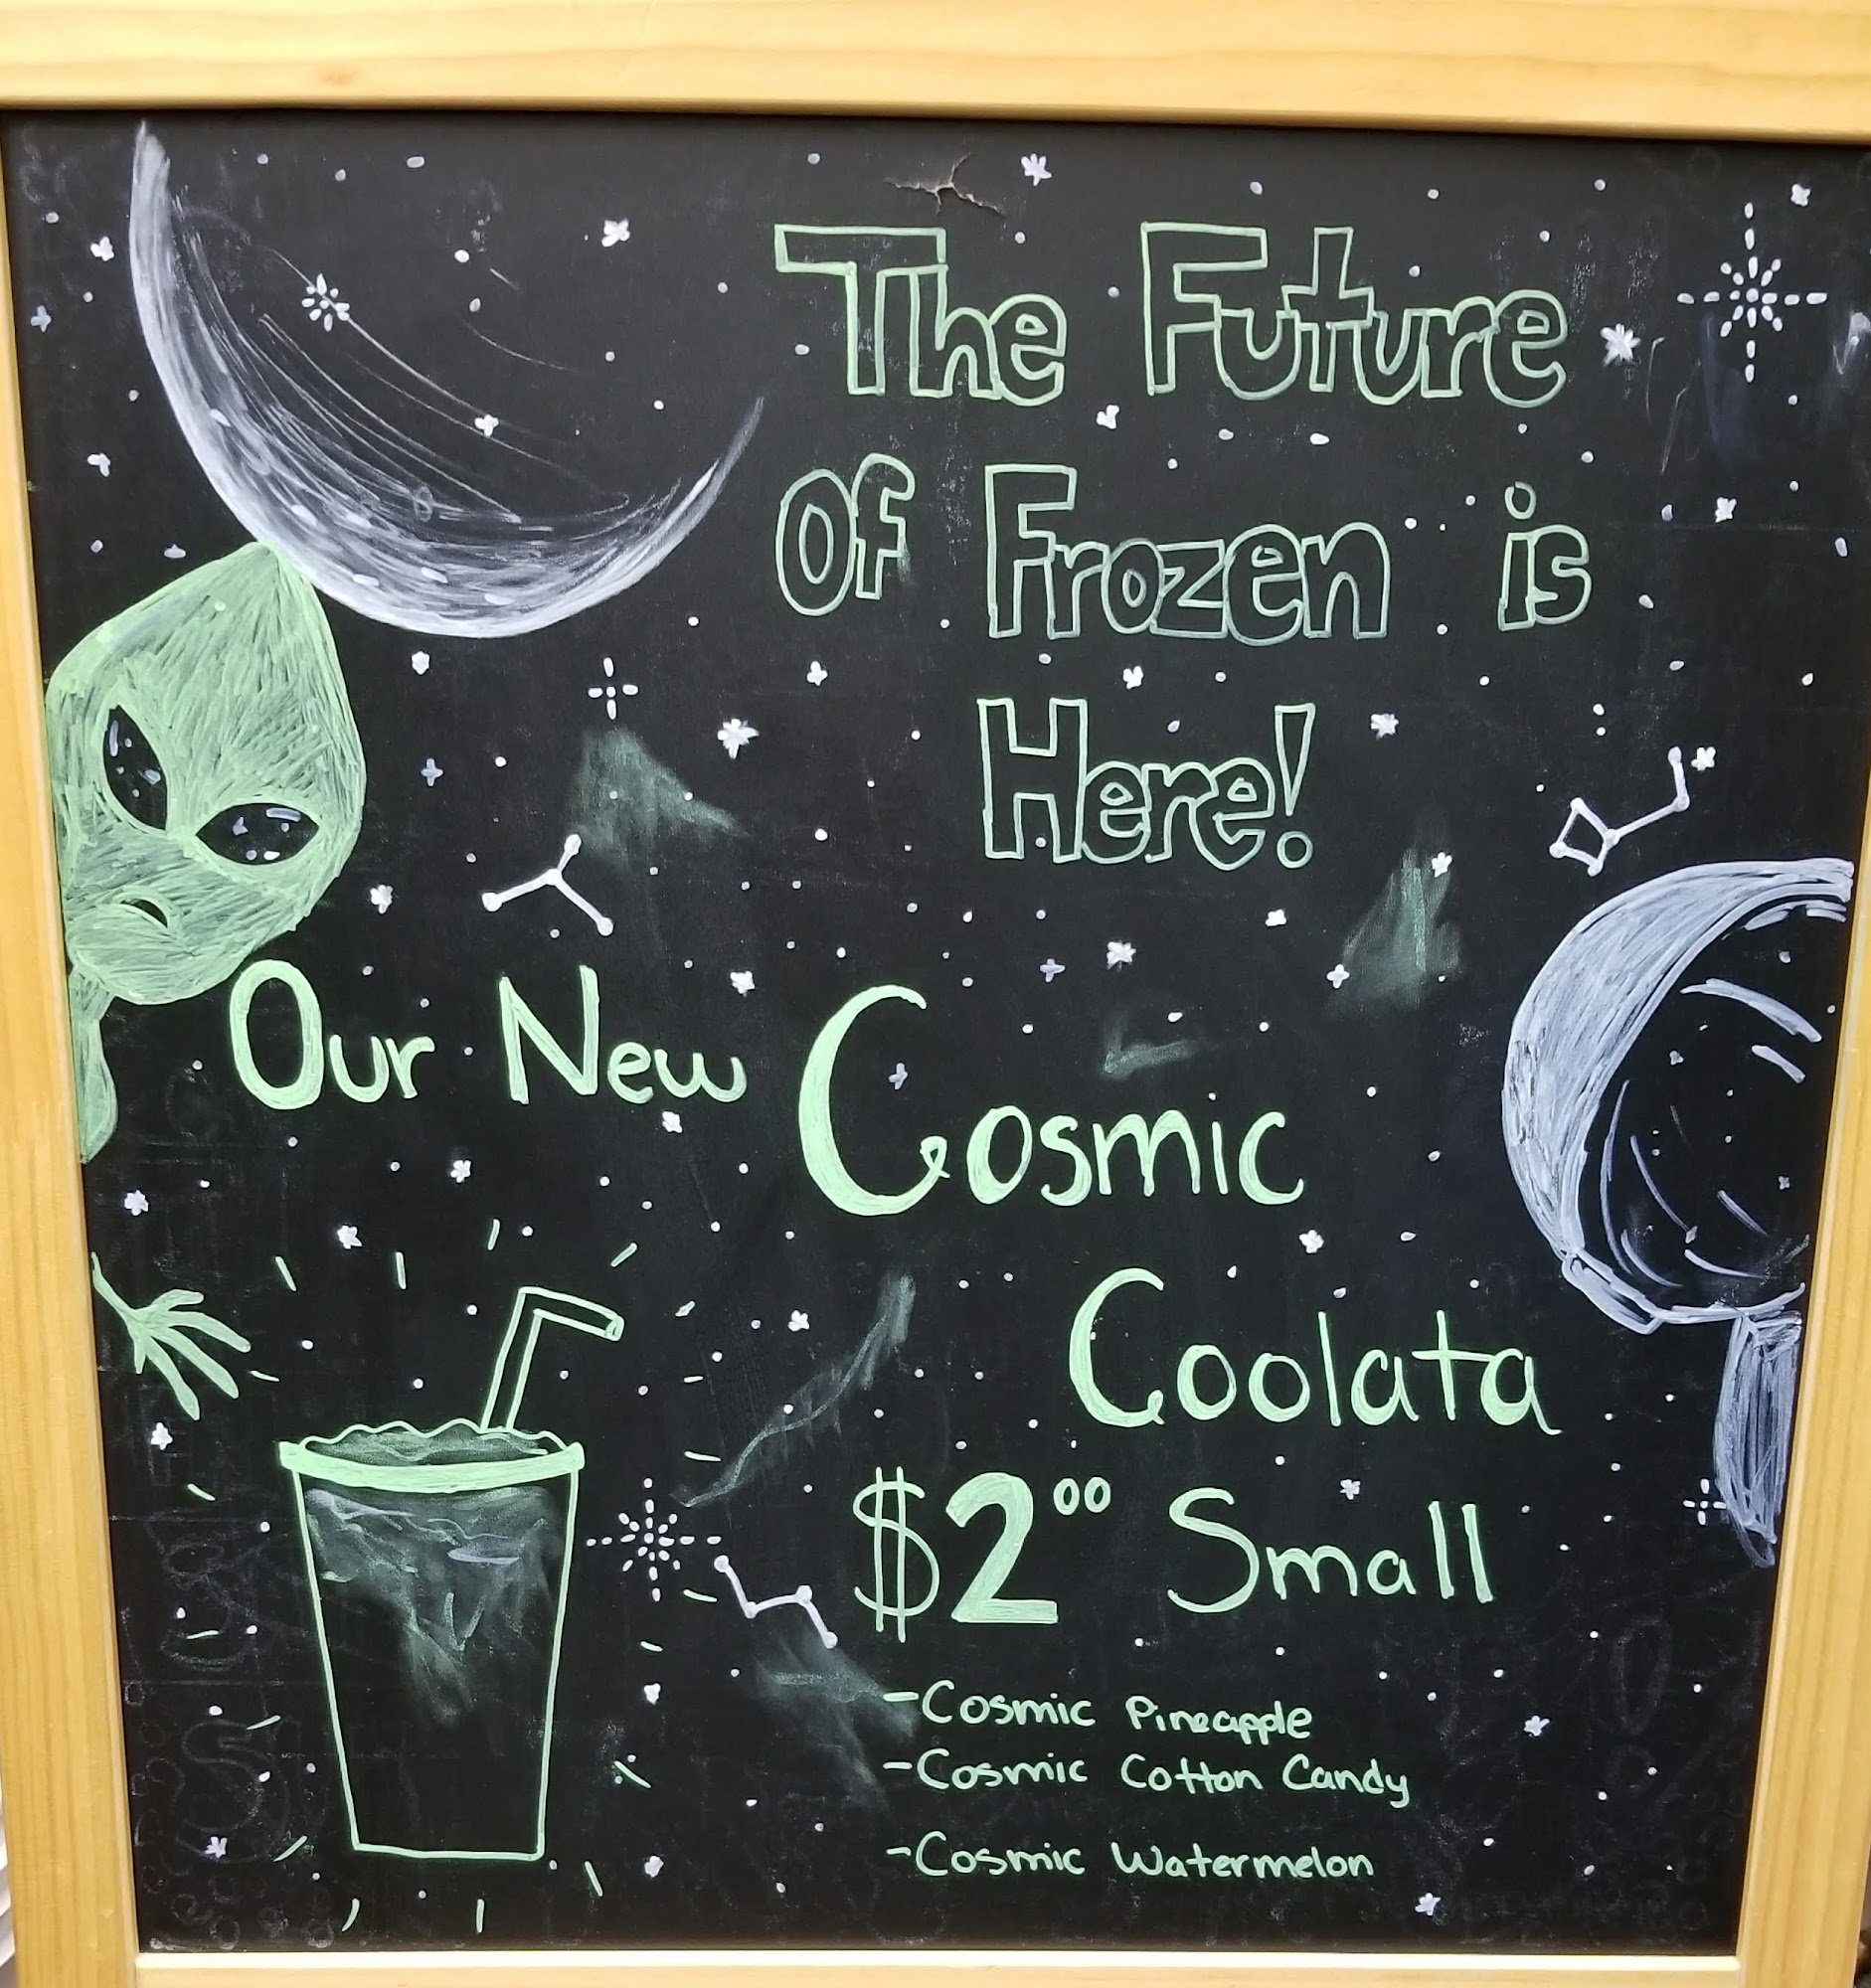 The Future
Of Frozen is
Here!
Our New Cosmic
Coolata
$2⁰⁰ Small
-Cosmic Pineapple
-Cosmic Cotton Candy
-Cosmic Watermelon